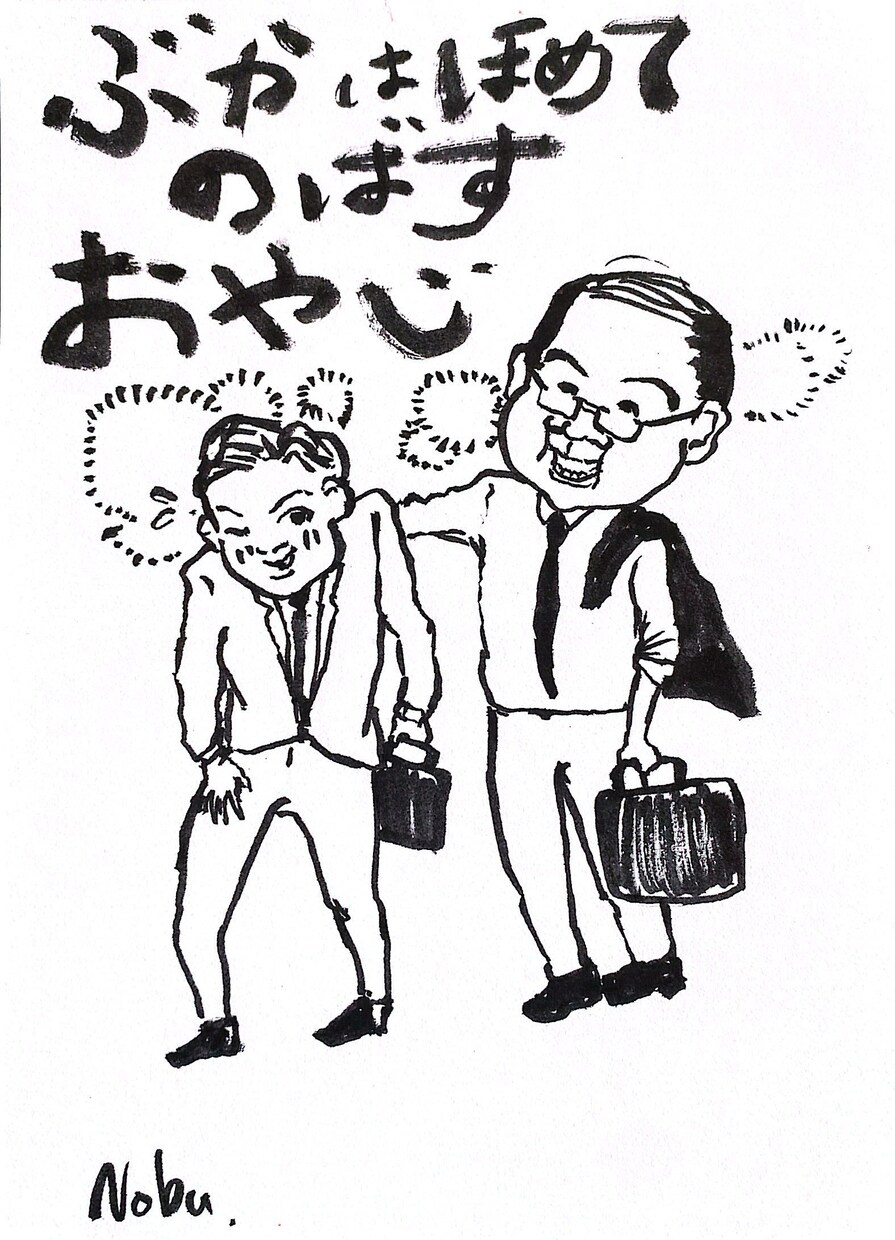 ぶかはほめて
のばす
おやじ
Nobu.